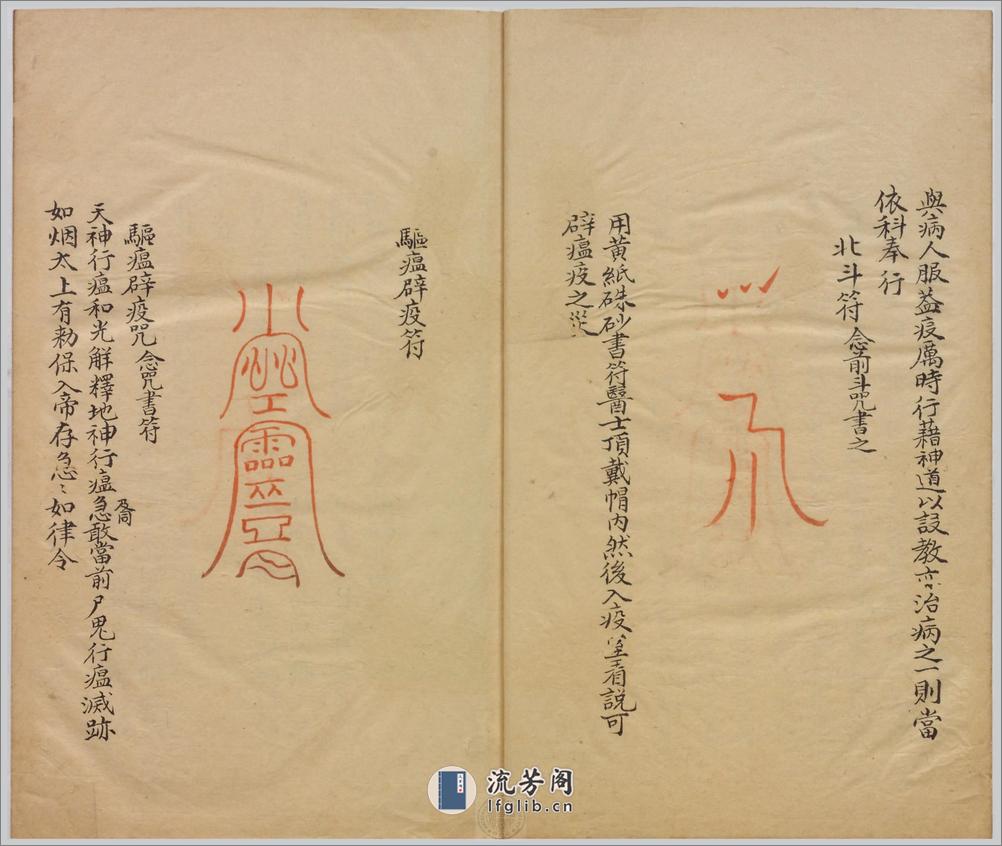 與病人服蓋疫厲時行藉神道以設教亦治病之一則當
依科奉行
北斗符 念前斗咒書之
用黃紙硃砂書符醫士頂戴帽內然後入疫室看說可
辟瘟疫之災
驅瘟辟疫符
驅瘟辟疫咒 念咒書符
天神行瘟和光解釋地神行瘟急敢當前尸鬼行瘟滅跡
及同
如烟太上有勅保入帝存急〻如律令
流芳阁
lfglib.cn